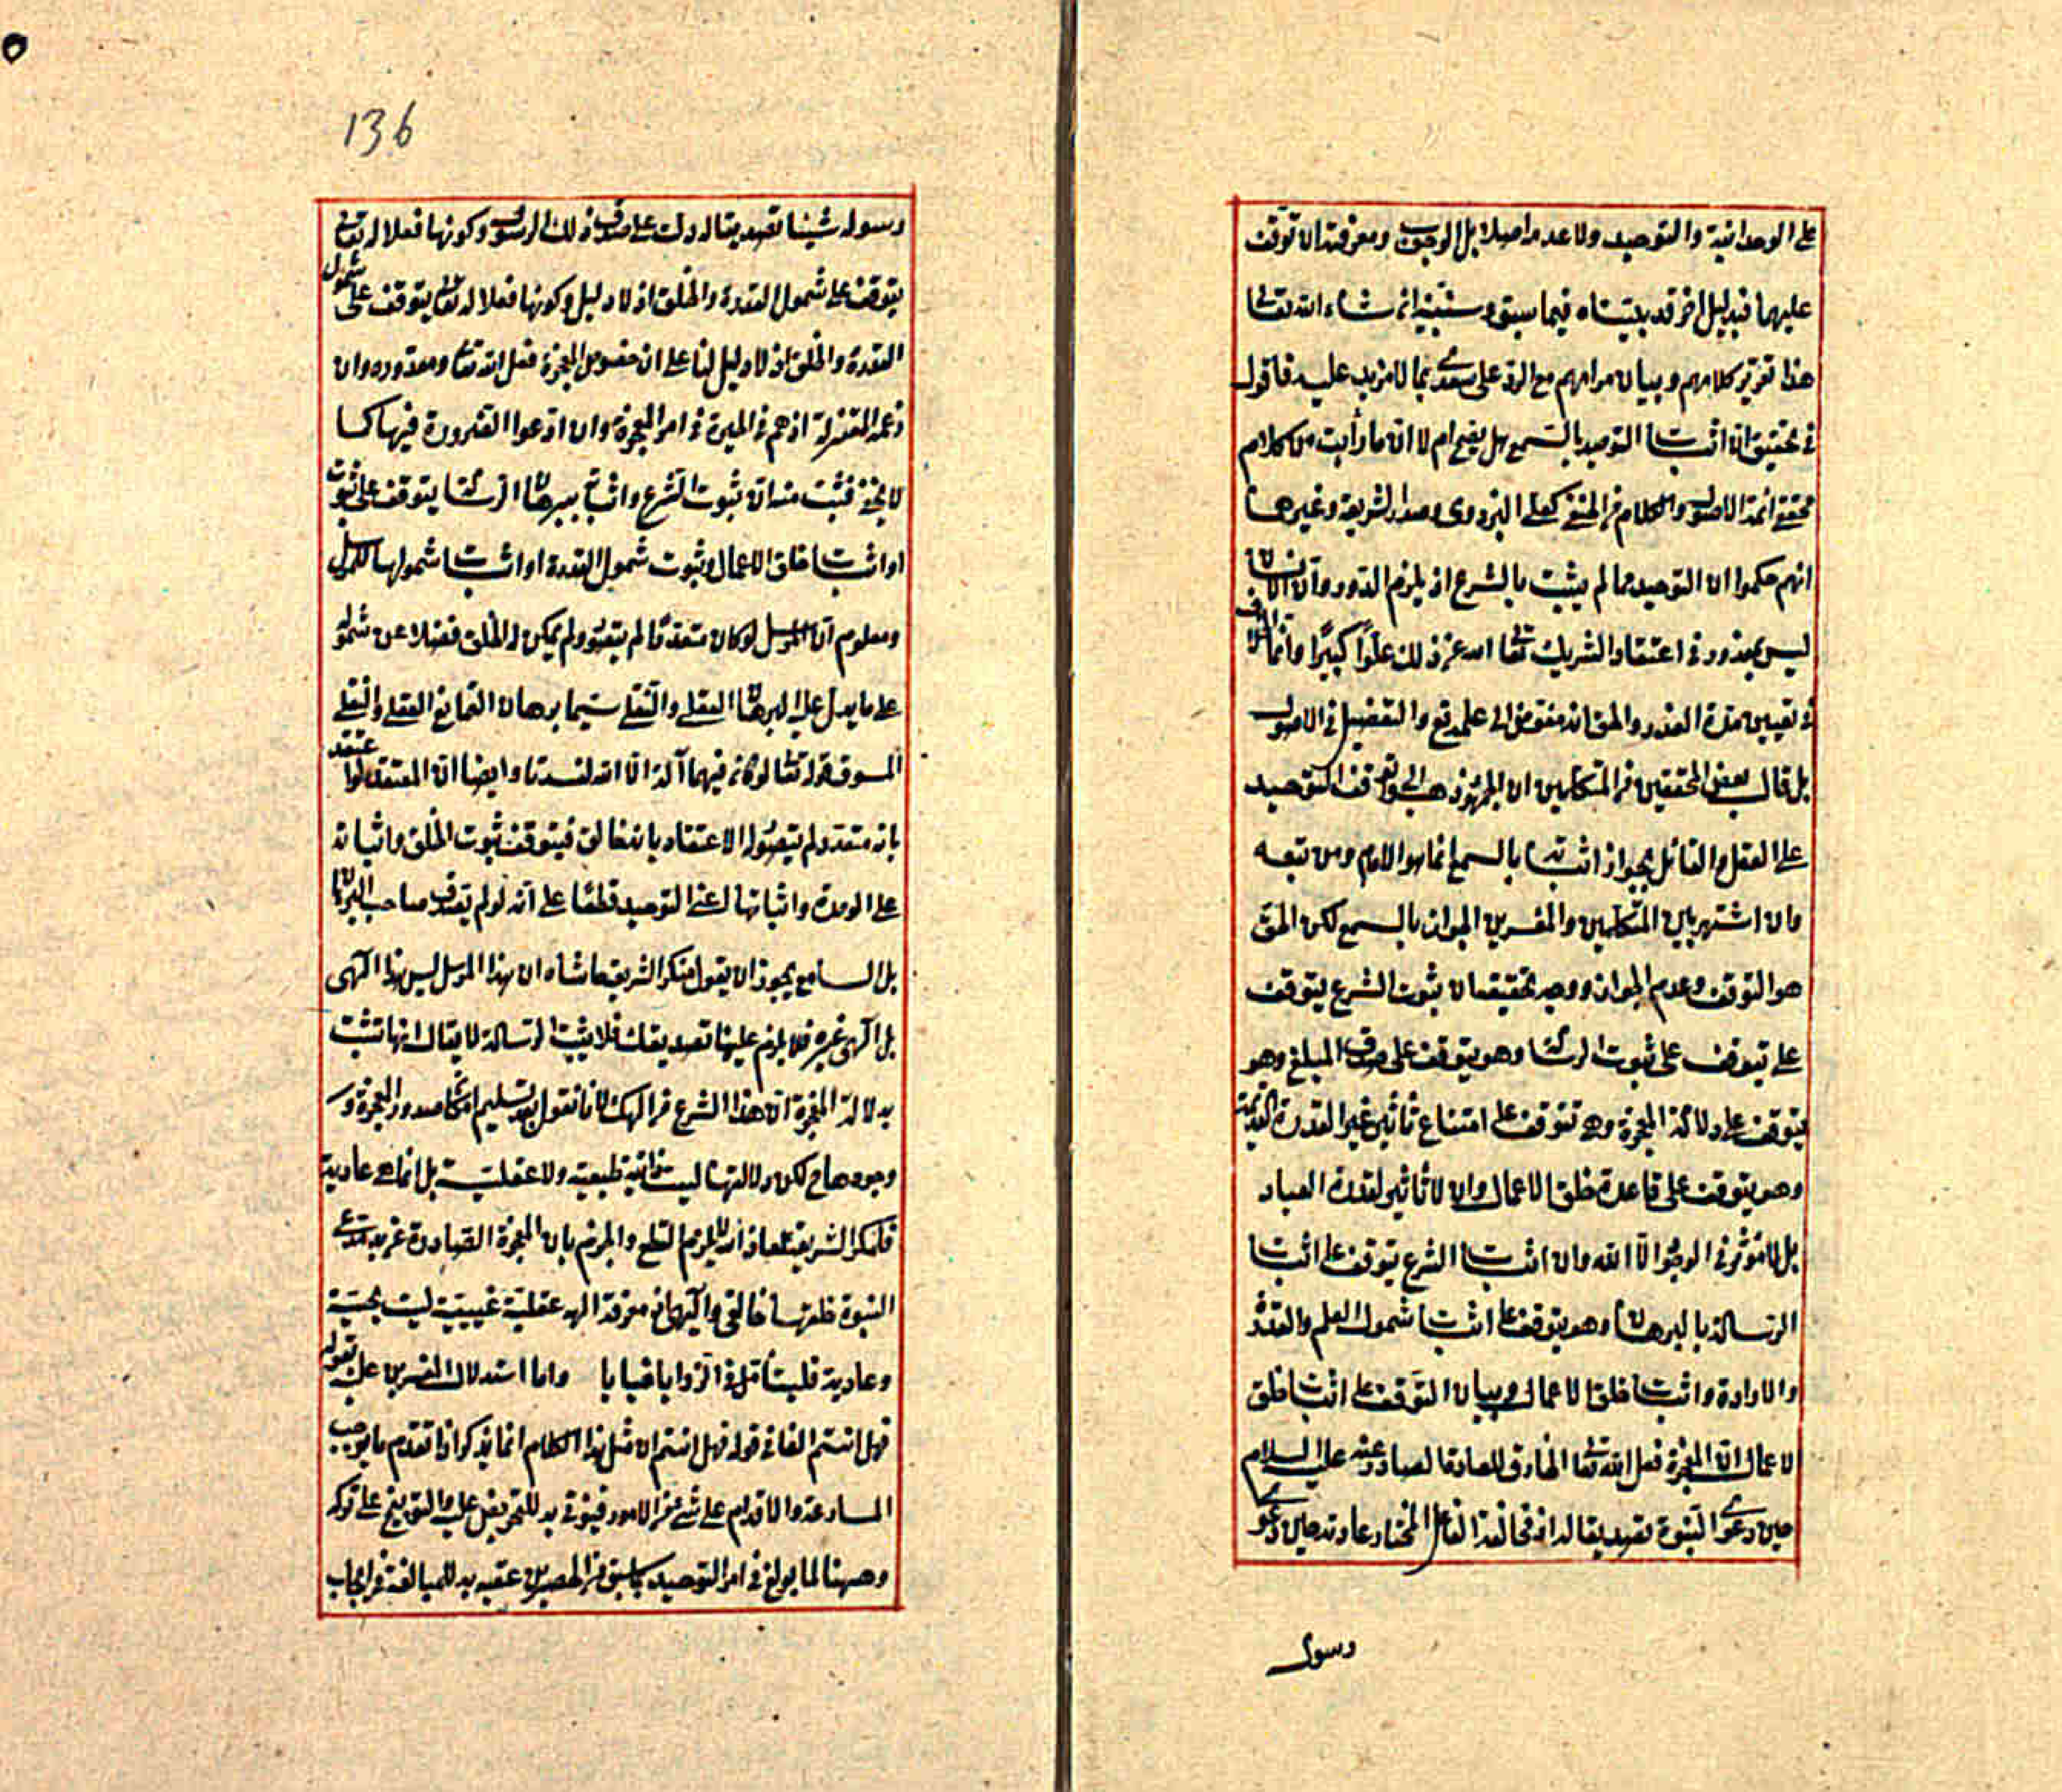 على الوحدانية والتوحيد ولا عدم اصلا بل الوجوب ومعرفته لا توقف
عليهما فبدليل اخر قد بيناه فيما سبق وسنبينه ان شاء الله تعالى
هذا تقرير كلامهم وبيان مرامهم مع الرد على سعدى بما لا مزيد عليه فاقول
فى تحقيق ان اثبات التوحيد بالسمع هل يصح ام لا ان ما رأيت من كلام
محققى أئمة الاصول والكلام من الحنفى كعلى البزدوى وصدر الشريعة وغيرهما
انهم حكموا ان التوحيد مما لم يثبت بالشرع اذ يلزم الدور وان الانسان
ليس بمعذور فى اعتقاد الشريك تعالى الله عن ذلك علوا كبيرا وانما
فى تعيين مدة العذر والحق انه مفوض الى علمه تع والتفصيل فى الاصول
بل قال بعض المحققين من المتكلمين ان الجمهور ذهب الى توقف التوحيد
على العقل والقائل بجواز اثباته بالسمع انما هو الامام ومن تبعه
وان اشتهر بين المتكلمين والمفسرين الجواز بالسمع لكن الحق
هو التوقف وعدم الجواز ووجه تحقيقه ان ثبوت الشرع يتوقف
على يتوقف على ثبوت الرسالة وهو يتوقف على صدق المبلغ وهو
يتوقف على دلالة المعجزة وهى تتوقف على امتناع تأثير غير القدرة القديمة
وهو يتوقف على قاعدة خلق الاعمال وان لا تأثير لقدرة العباد
بل لا مؤثر فى الوجود الا الله وان اثبات الشرع يتوقف على اثبات
الرسالة بالبرهان وهو يتوقف على اثبات شمول العلم والقدرة
والارادة واثبات خلق الاعمال وبيان التوقف على اثبات خلق
الاعمال ان المعجزة فعل الله تعالى الخارق للعادة الصادر عنه عليه السلام
حين دعوى النبوة تصديقا له اذ مخالفة الفاعل المختار عادته حين دعوى
رسول
136
رسوله شيئا تصديقا له دلت على صدق ذلك الرسول وكونها فعلا له تعالى
يتوقف على شمول القدرة والخلق اذ لا دليل وكونها فعلا له تعالى يتوقف على شمول
القدرة والخلق اذ لا دليل لنا على ان خصوص المعجزة فعل الله تعالى ومقدوره وان
زعمه المعتزلة اذ هم فى الحيرة فى امر المعجزة وان ادعوا الضرورة فيها كما
لا يخفى فثبت منه ان ثبوت الشرع واثباته ببرهان الرسالة يتوقف على ثبوت
او اثبات خلق الاعمال وثبوت شمول القدرة او اثبات شمولها للمرسل
ومعلوم ان المرسل لو كان متعددا لم يتصور ولم يمكن له الخلق فضلا عن شموله
على ما يدل عليه البرهان العقلى والنقلى سيما برهان التمانع العقلى والنقلى
المسوق قوله تعالى لو كان فيهما آلهة الا الله لفسدتا وايضا ان المعتقد لو اعتقد
بانه متعدد لم يتصور له الاعتقاد بانه خالق فيتوقف ثبوت الخلق واثباته
على الوحدة واثباتها اعنى التوحيد قطعا على انه لو لم يعترف صاحب البرهان
بل السامع يجوز ان يقول منكر الشريعة حاشاه ان هذا المرسل ليس هذا الهى
بل الهى غيره فلا يلزم علينا تصديقك فلا يثبت الرسالة لا يقال انها تثبت
بدلالة المعجزة ان هذا الشرع من الهك لانا نقول بعد تسليم امكان صدور المعجزة و
وجودها ح لكن دلالتها ليست طبيعية ولا عقلية بل انما هى عادية
النبوة خلقها خالقى والهى اذ معرفة اله عقلية غيبية ليست بحسية
وعادية فليتأمل فى الزوايا خبايا واما استدلال المفسرين عليه بقوله
فهل انتم الفاء فى قوله فهل انتم ان مثل هذا الكلام انما يذكر اذا تقدم ما يوجب
المسارعة والاقدام على شئ من الامور فيؤتى به للتحريض عليه والتوبيخ على تركه
وههنا لما بولغ فى امر التوحيد بما سبق من الحصرين عقبه به للمبالغة فى ايجاب